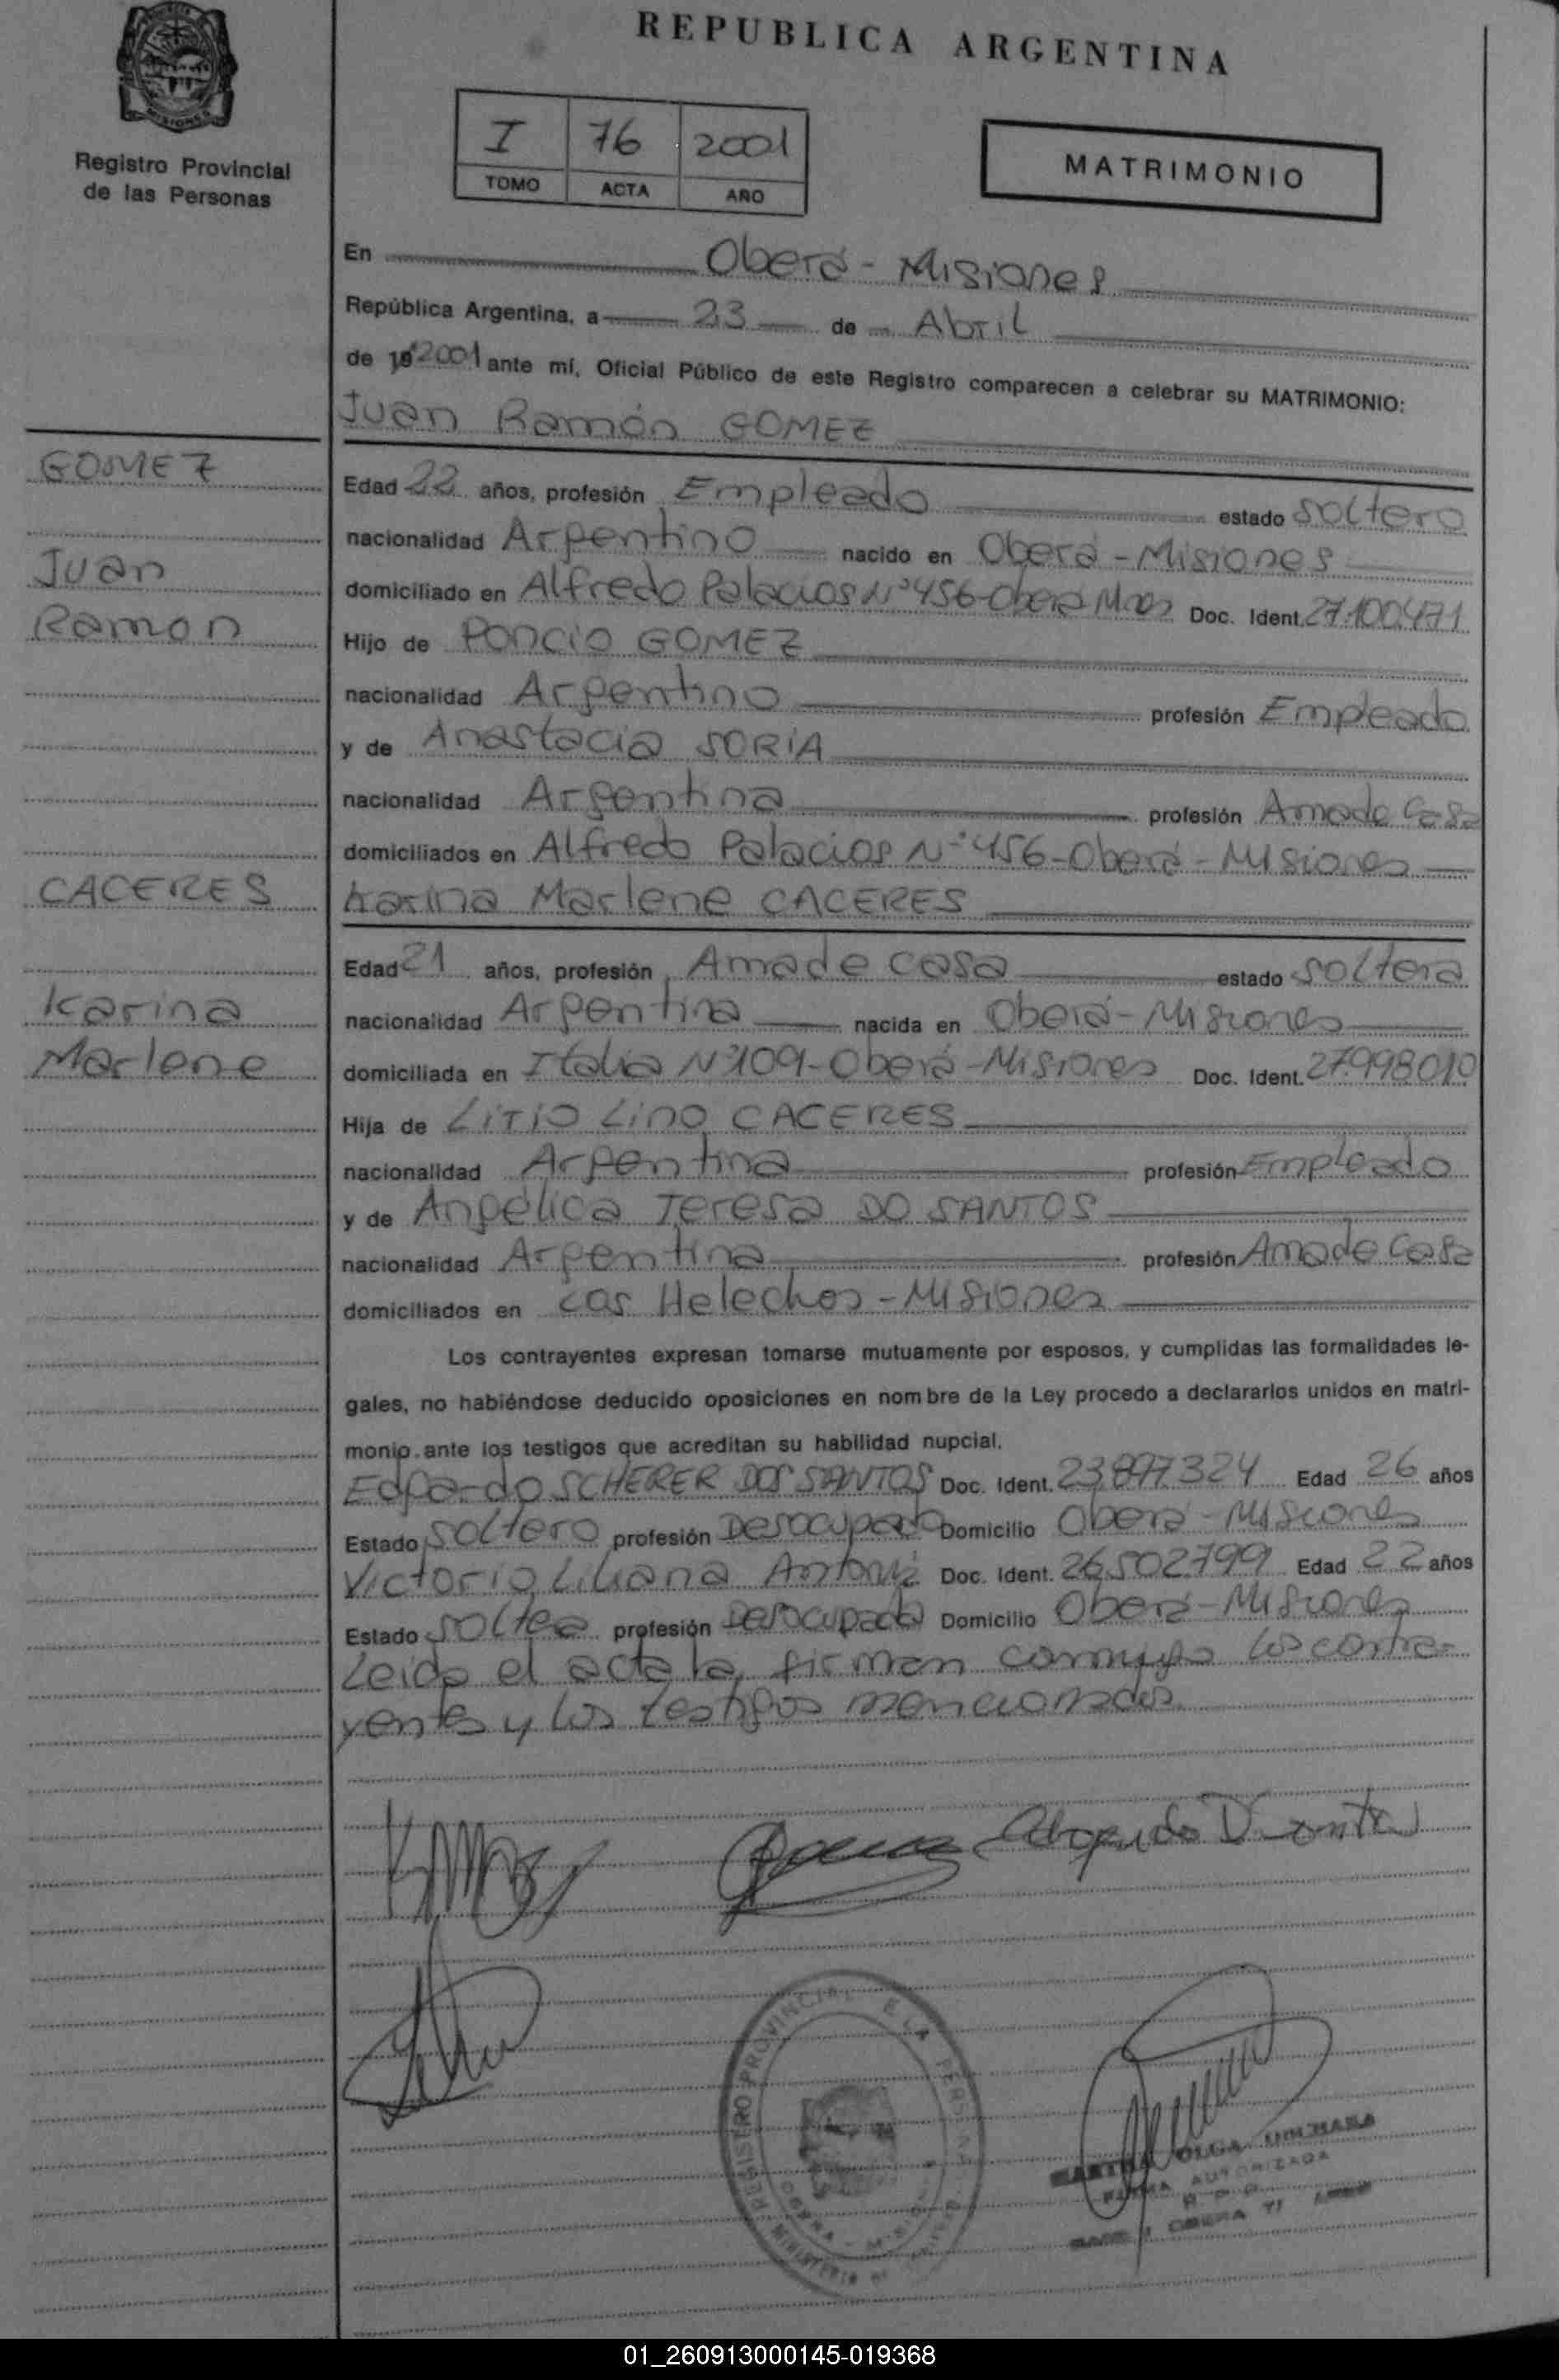 REPUBLICA ARGENTINA
MISIONES
Registro Provincial
de las Personas
I 76 2001
TOMO ACTA AÑO
MATRIMONIO
En Oberá - Misiones
República Argentina, a 23 de Abril
de 19 2001 ante mí, Oficial Público de este Registro comparecen a celebrar su MATRIMONIO:
Juan Ramón GOMEZ
GOMEZ
Juan
Ramon
Edad 22 años, profesión Empleado estado soltero
nacionalidad Argentino nacido en Oberá - Misiones
domiciliado en Alfredo Palacios Nº 456-Oberá Mnes Doc. Ident. 27.100.471
Hijo de Poncio GOMEZ
nacionalidad Argentino profesión Empleado
y de Anastacia SORIA
nacionalidad Argentina profesión Ama de Casa
domiciliados en Alfredo Palacios Nº 456-Oberá - Misiones
CACERES
Karina
Marlene
Karina Marlene CACERES
Edad 21 años, profesión Ama de casa estado soltera
nacionalidad Argentina nacida en Oberá - Misiones
domiciliada en Italia Nº 109-Oberá - Misiones Doc. Ident. 27.998.010
Hija de Litio Lino CACERES
nacionalidad Argentina profesión Empleado
y de Angélica Teresa DO SANTOS
nacionalidad Argentina profesión Ama de Casa
domiciliados en Los Helechos - Misiones
Los contrayentes expresan tomarse mutuamente por esposos, y cumplidas las formalidades le-
gales, no habiéndose deducido oposiciones en nombre de la Ley procedo a declararlos unidos en matri-
monio ante los testigos que acreditan su habilidad nupcial.
Edgardo SCHERER DOS SANTOS Doc. Ident. 23.897.324 Edad 26 años
Estado soltero profesión Desocupado Domicilio Oberá - Misiones
Victoria Liliana Doc. Ident. 26.502.799 Edad 22 años
Estado profesión Desocupada Domicilio Oberá - Misiones
Leida el acta la firman conmigo los contra-
yentes y los testigos mencionados
REGISTRO PROVINCIAL DE LAS PERSONAS
MINISTERIO DE
OLGA
FIRMA AUTORIZADA
R P P
OBERA
01_260913000145-019368